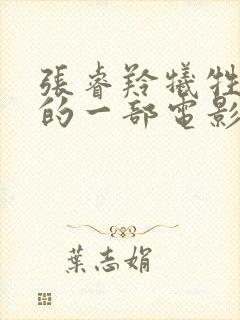 張睿羚犧牲
的一部電影
葉志娟